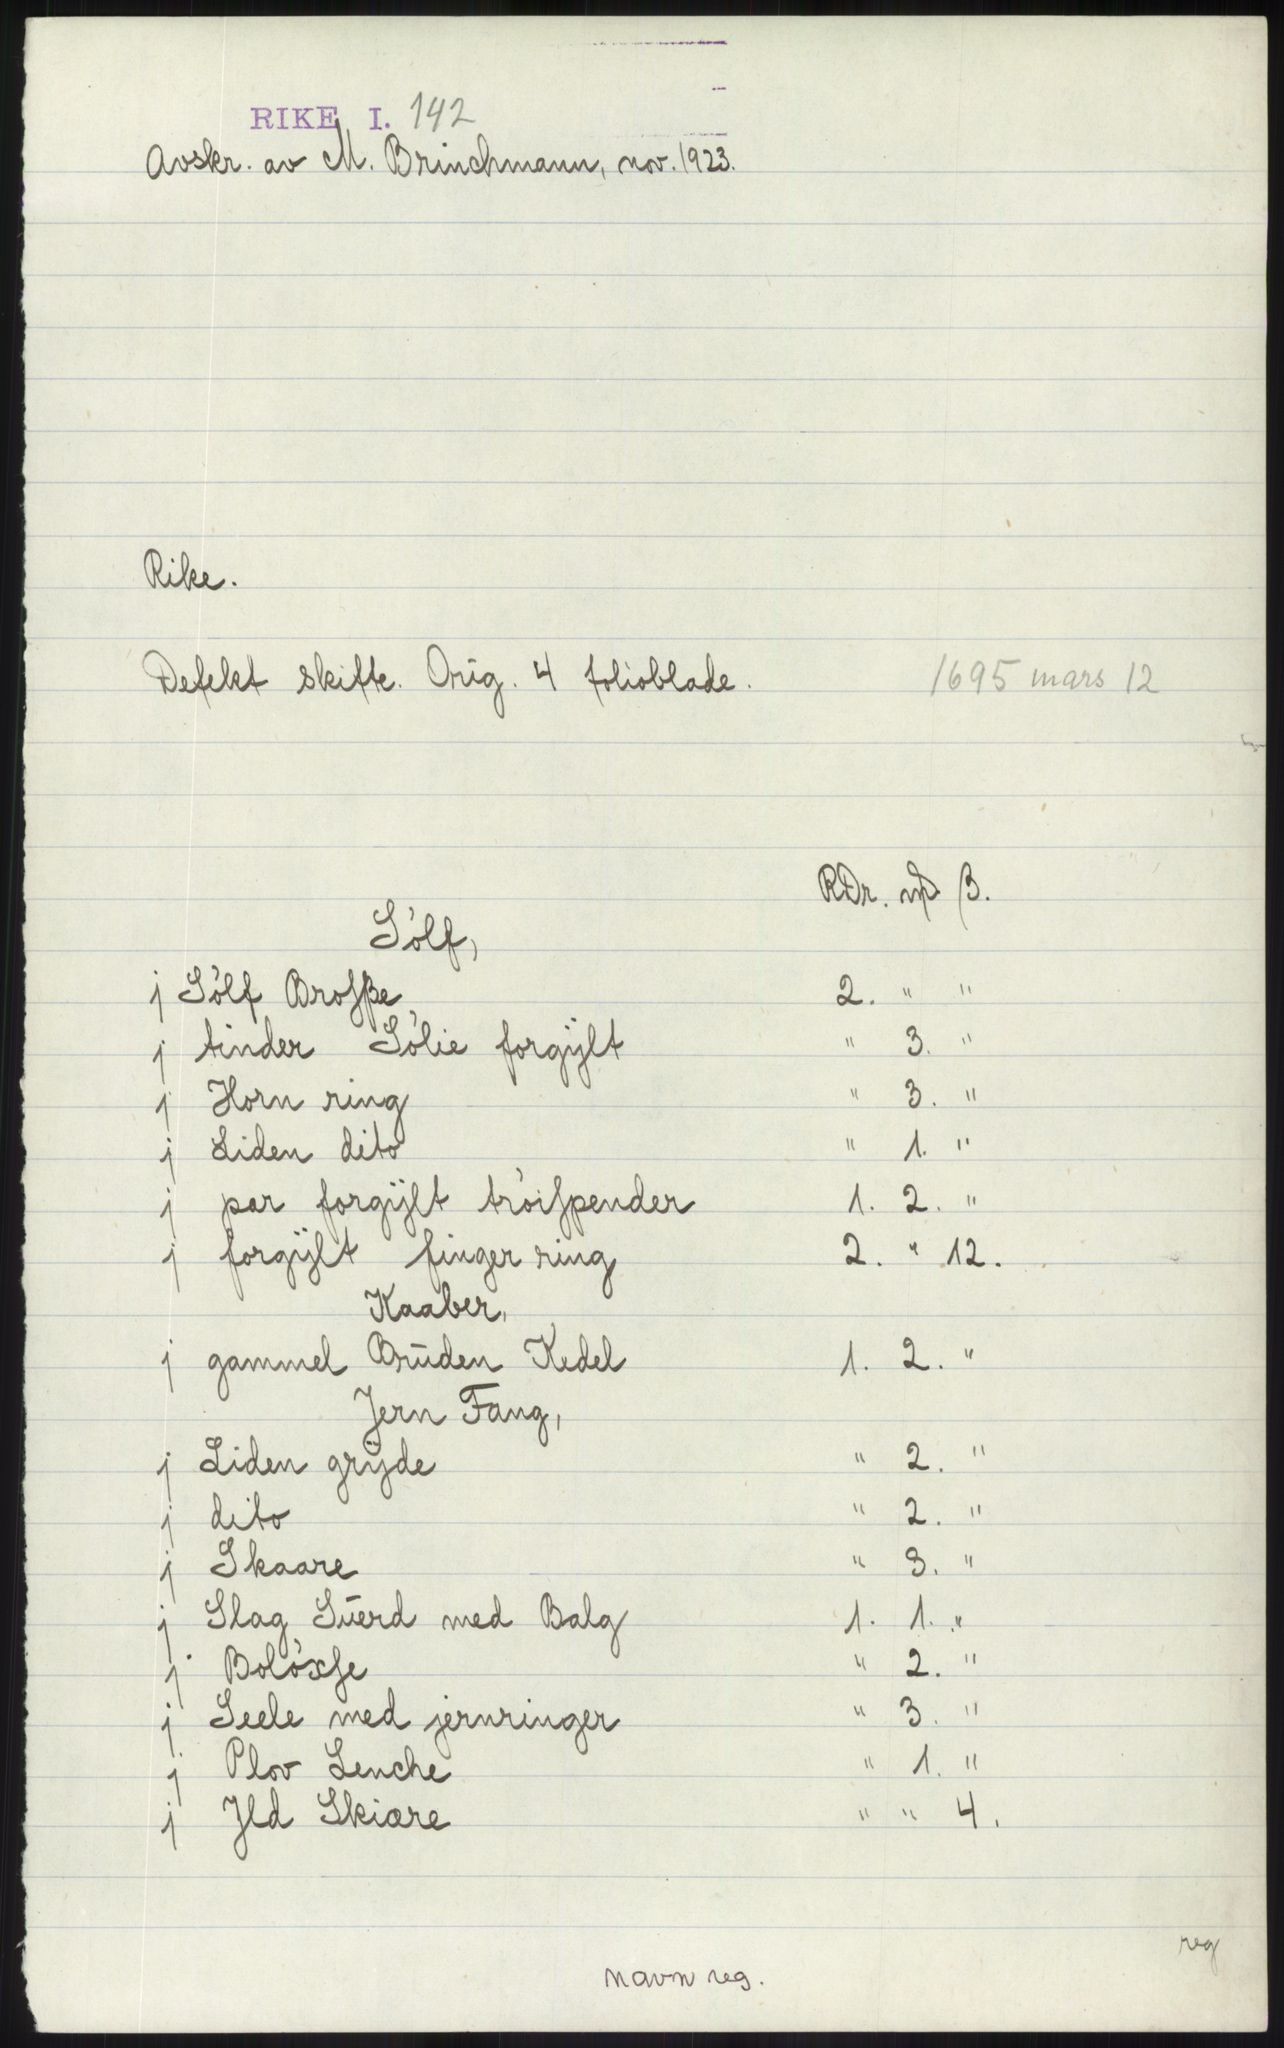 RIKE I. 142
Avskr. av M. Brinchmann, nov. 1923.
Rike.
Defekt skifte. Orig. 4 folioblade. 1695 mars 12
RDr. mſ β.
Sólf,
j Sólf Broſße 2. " "
j tinder Sólie forgÿlt " 3. "
j Horn ring " 3. "
j Liden dito " 1. "
j par forgÿlt tróiſpender 1. 2. "
j forgÿlt finger ring 2. " 12.
Kaaber,
j gammel Brūden Kedel 1. 2. "
Jern Fang,
j Liden grÿde " 2. "
j dito " 2. "
j Skaare " 3. "
j Slag Sūerd med Balg 1. 1. "
j Bolóxſe " 2. "
j Seele med jernringer " 3. "
j Plov Lenche " 1. "
j Jld Skiære " " 4.
reg
navn reg.